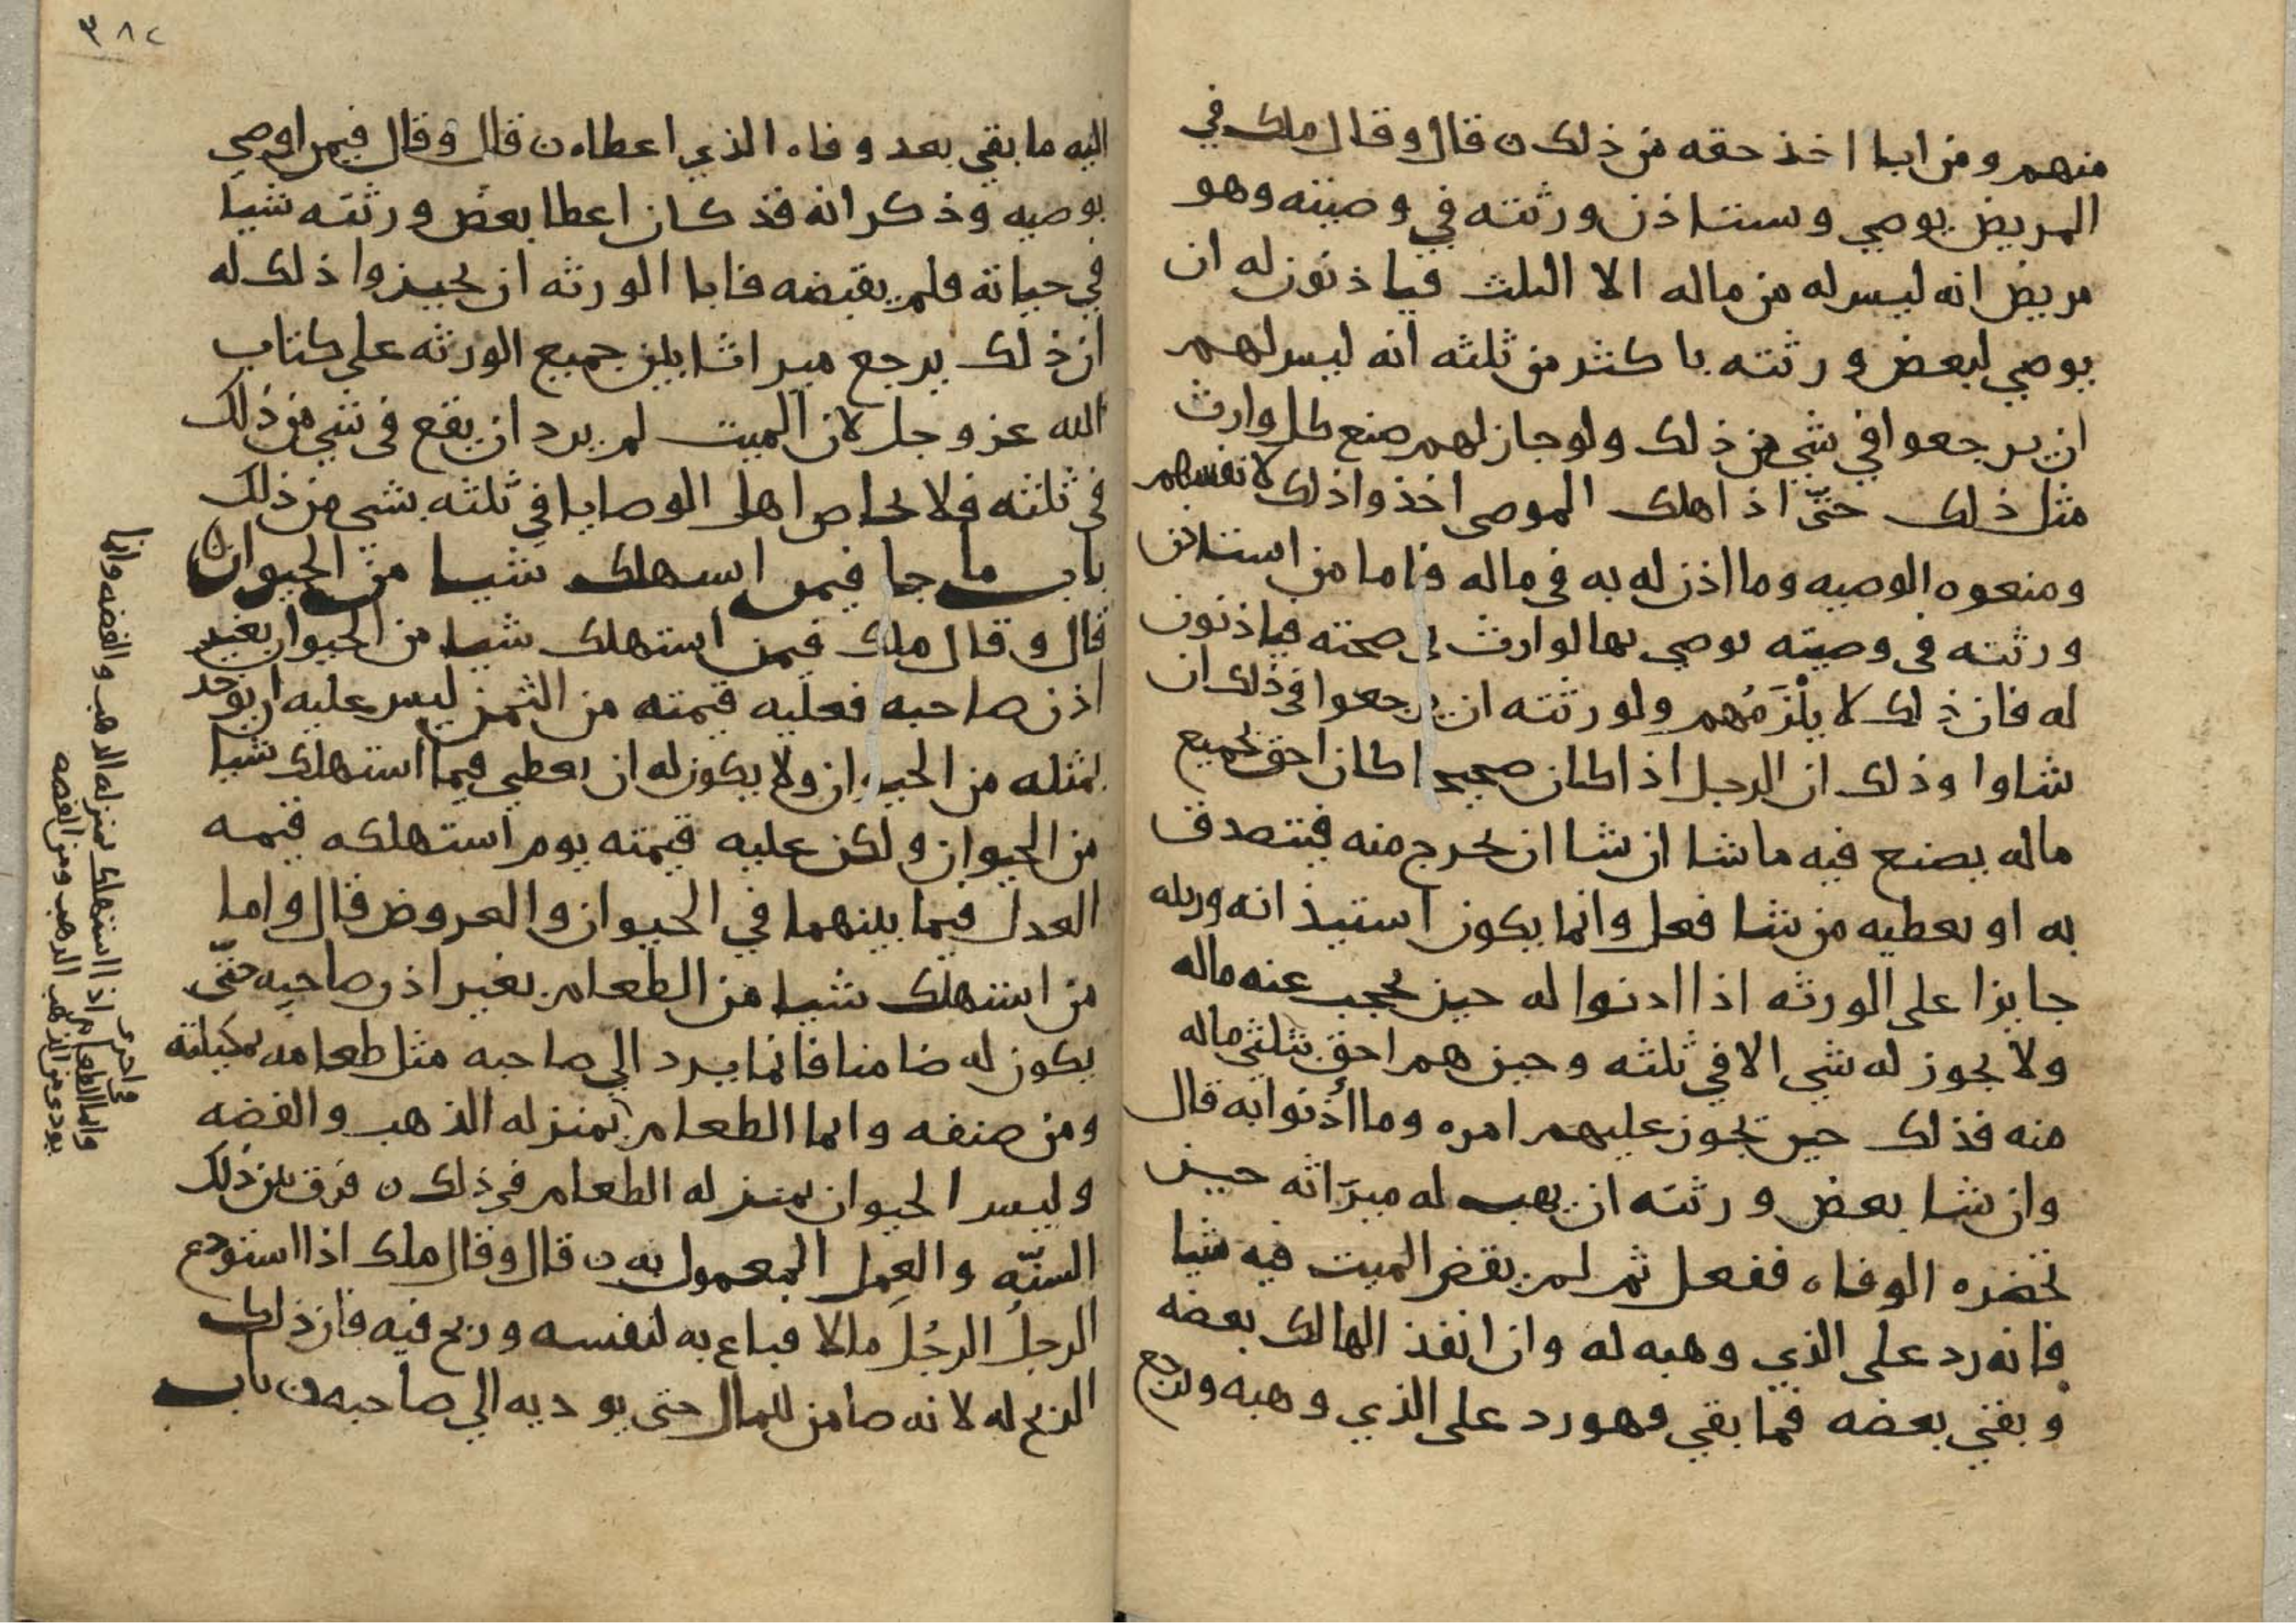 منهم ومن ابا اخذ حقه من ذلك ن قال وقال ملك في
المريض يوصي وستاذن ورثته في وصيته وهو
مريض انه ليس له من ماله الا الثلث فياذنون له ان
يوصي لبعض ورثته باكثر من ثلثه انه ليس لهم
ان يرجعوا في شي من ذلك ولو جاز لهم صنع كل وارث
مثل ذلك حتى اذا هلك الموصي اخذوا ذلك لانفسهم
ومنعوه الوصيه وما اذن له به في ماله فاما من استاذن
ورثته في وصيته يوصي بها لوارث في صحته فياذنون
له فان ذلك لا يلزمهم ولورثته ان يرجعوا في ذلك ان
شاوا وذلك ان الرجل اذا كان صحيحا كان احق بجميع
ماله يصنع فيه ما شا ان شا ان يخرج منه فيتصدق
به او يعطيه من شا فعل وانما يكون استيذانه ورثته
جايزا على الورثه اذا اذنوا له حين يحجب عنه ماله
ولا يجوز له شي الا في ثلثه وحين هم احق بثلثي ماله
منه فذلك حين يجوز عليهم امره وما أذنوا به قال
وان شا بعض ورثته ان يهب له ميراثه حين
تحضره الوفاه ففعل ثم لم يقض الميت فيه شيا
فانه رد على الذي وهبه له وان انفذ الهالك بعضه
وبقي بعضه فما بقي فهو رد على الذي وهبه ورجع
٣٨٢
اليه ما بقي بعد وفاه الذي اعطاه ن قال وقال فيمن اوصي
بوصيه وذكر انه قد كان اعطا بعض ورثته شيا
في حياته فلم يقبضه فابا الورثه ان يجيزوا ذلك له
ان ذلك يرجع ميراثا بين جميع الورثه على كتاب
الله عز وجل لان الميت لم يرد ان يقع في شي من ذلك
في ثلثه فلا يحاص اهل الوصايا في ثلثه بشي من ذلك
باب ما جا فيمن استهلك شيا من الحيوان
قال وقال ملك فيمن استهلك شيا من الحيوان بغير
اذن صاحبه فعليه قيمته من الثمن ليس عليه ان يوخذ
بمثله من الحيوان ولا يكون له ان يعطي فيما استهلك شيا
من الحيوان ولكن عليه قيمته يوم استهلكه قيمه
العدل فيما بينهما في الحيوان والعروض قال واما
من استهلك شيا من الطعام بغير اذن صاحبه حتى
يكون له ضامنا فانما يرد الي صاحبه مثل طعامه بمكيلته
ومن صنفه وانما الطعام بمنزله الذهب والفضه
وليس الحيوان بمنزله الطعام في ذلك ن فرق بين ذلك
السنّه والعمل المعمول به ن قال وقال ملك اذا استودع
الرجلُ الرجُلَ مالا فباع به لنفسه وربح فيه فان ذلك
الربح له لانه ضامن للمال حتى يوديه الي صاحبه ن باب
في اخرى
وانما الطعام اذا استهلك بمنزله الذهب والفضه وانما
يودي من الذهب الذهب ومن الفضه